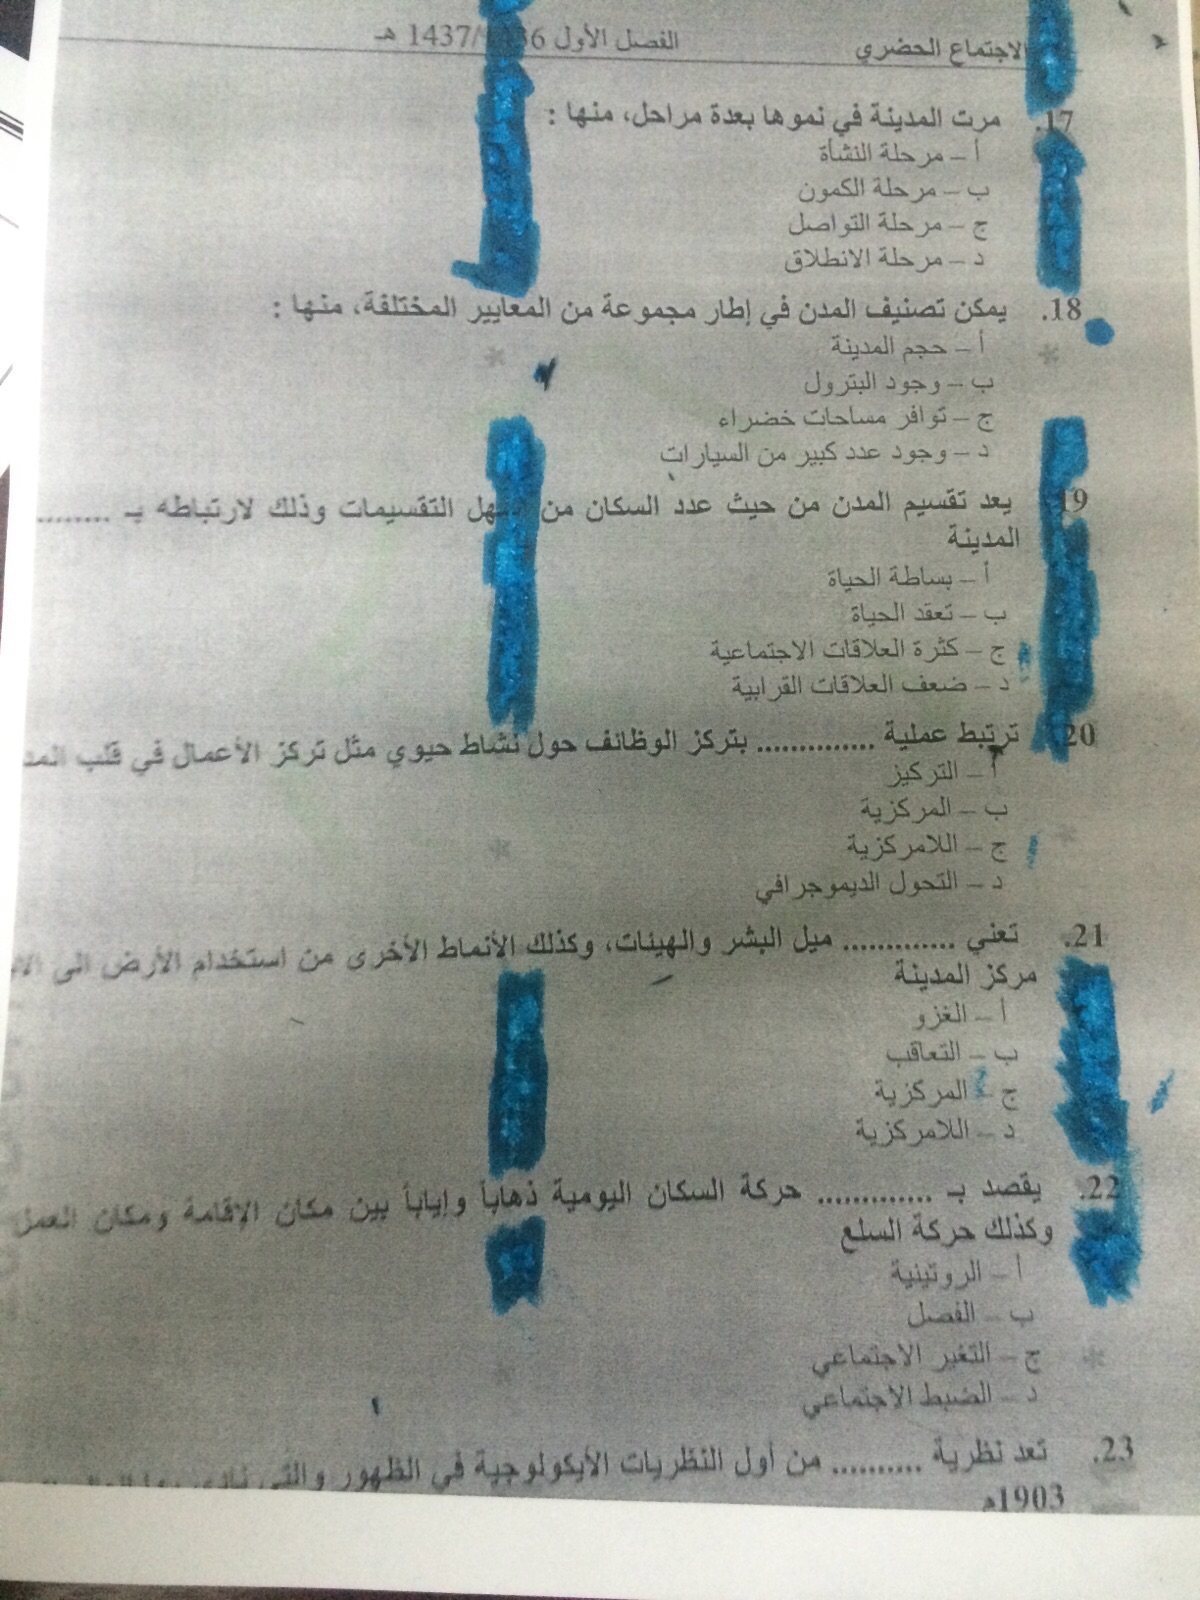 الاجتماع الحضري
الفصل الأول 36 /1437 هـ
17. مرت المدينة في نموها بعدة مراحل، منها :
أ – مرحلة النشأة
ب – مرحلة الكمون
ج – مرحلة التواصل
د – مرحلة الانطلاق
18. يمكن تصنيف المدن في إطار مجموعة من المعايير المختلفة، منها :
أ – حجم المدينة
ب – وجود البترول
ج – توافر مساحات خضراء
د – وجود عدد كبير من السيارات
19 يعد تقسيم المدن من حيث عدد السكان من أسهل التقسيمات وذلك لارتباطه بـ ........
المدينة
أ – بساطة الحياة
ب – تعقد الحياة
ج – كثرة العلاقات الاجتماعية
د – ضعف العلاقات القرابية
20 ترتبط عملية .............. بتركز الوظائف حول نشاط حيوي مثل تركز الأعمال في قلب
أ – التركيز
ب – المركزية
ج – اللامركزية
د – التحول الديموجرافي
21. تعني ............. ميل البشر والهيئات، وكذلك الأنماط الأخرى من استخدام الأرض الى
مركز المدينة
أ – الغزو
ب – التعاقب
ج – المركزية
د – اللامركزية
22. يقصد بـ ............. حركة السكان اليومية ذهاباً وإياباً بين مكان الإقامة ومكان العمل
وكذلك حركة السلع
أ – الروتينية
ب – الفصل
ج – التغير الاجتماعي
د – الضبط الاجتماعي
23. تعد نظرية .......... من أول النظريات الأيكولوجية في الظهور والتي
1903م